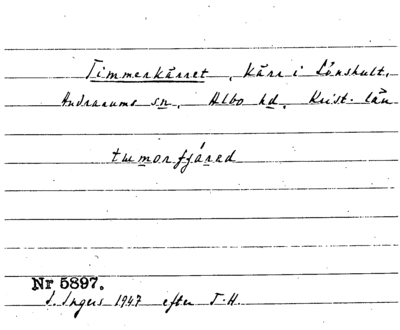 Timmerkärret, Kärr i Lönshult,
Andrarums sn. Albo hd. Krist. län
tummorfjárad
Nr 5897.
I. Ingers 1947 efter T.H.